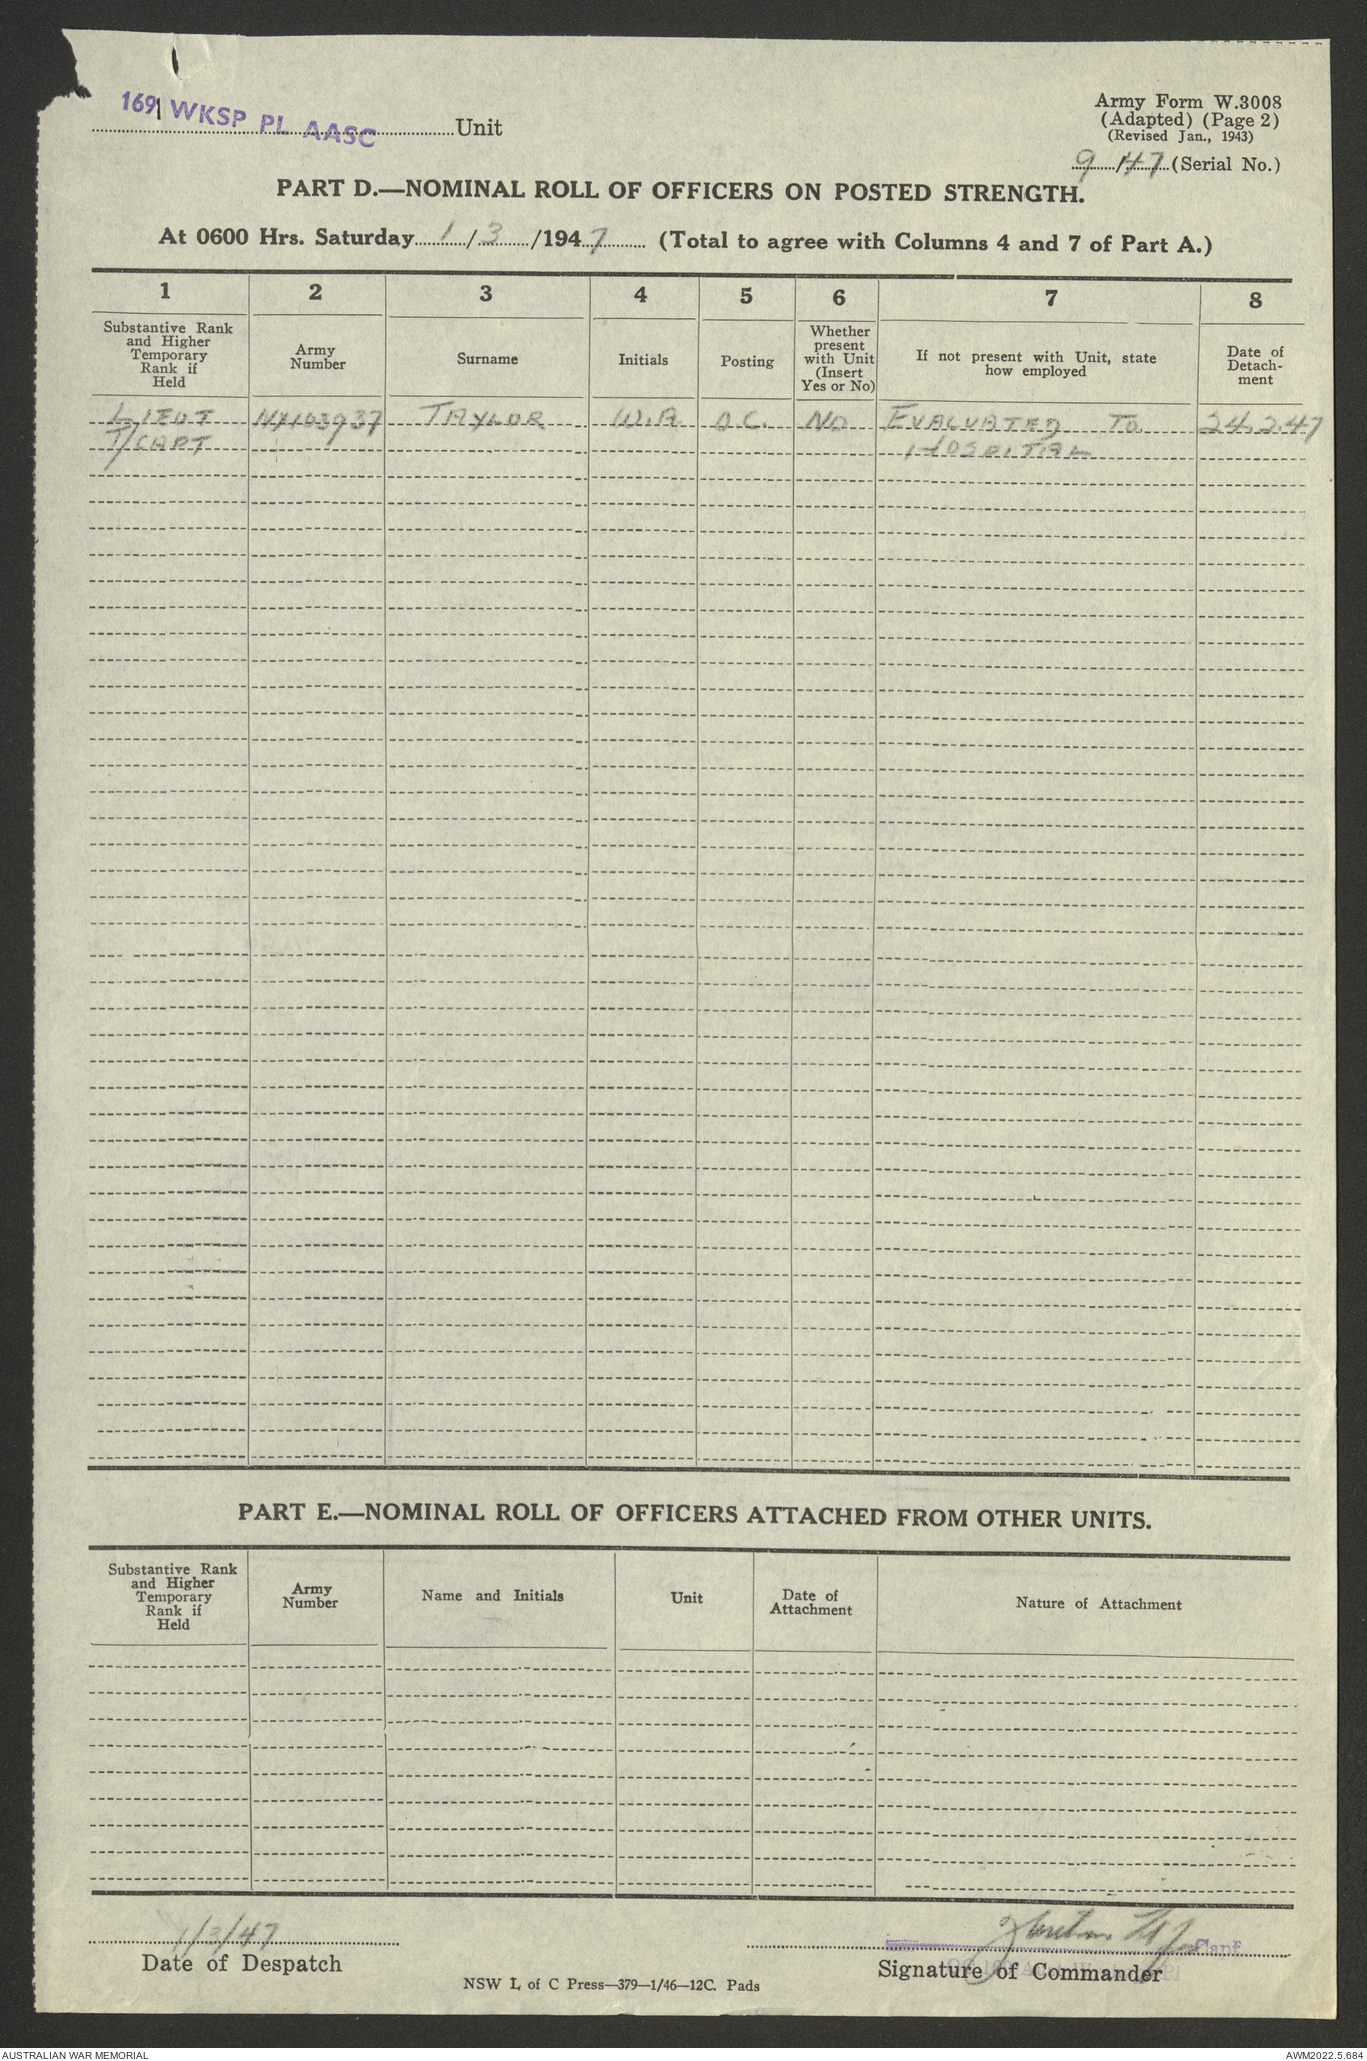 169 WKSP PL AASC Unit
Army Form W.3008
(Adapted) (Page 2)
(Revised Jan., 1943)
9/47 (Serial No.)
PART D.—NOMINAL ROLL OF OFFICERS ON POSTED STRENGTH.
At 0600 Hrs. Saturday 1/3/1947 (Total to agree with Columns 4 and 7 of Part A.)
1 2 3 4 5 6 7 8
Substantive Rank and Higher Temporary Rank if Held
Army Number
Surname
Initials
Posting
Whether present with Unit (Insert Yes or No)
If not present with Unit, state how employed
Date of Detach-ment
LIEUT NX103937 TAYLOR W.A. O.C. NO EVACUATED TO 24.2.47
T/CAPT HOSPITAL
PART E.—NOMINAL ROLL OF OFFICERS ATTACHED FROM OTHER UNITS.
Substantive Rank and Higher Temporary Rank if Held
Army Number
Name and Initials
Unit
Date of Attachment
Nature of Attachment
1/3/47
Capt
Date of Despatch
Signature of Commander
NSW L of C Press—379—1/46—12C. Pads
AUSTRALIAN WAR MEMORIAL
AWM2022.5.684